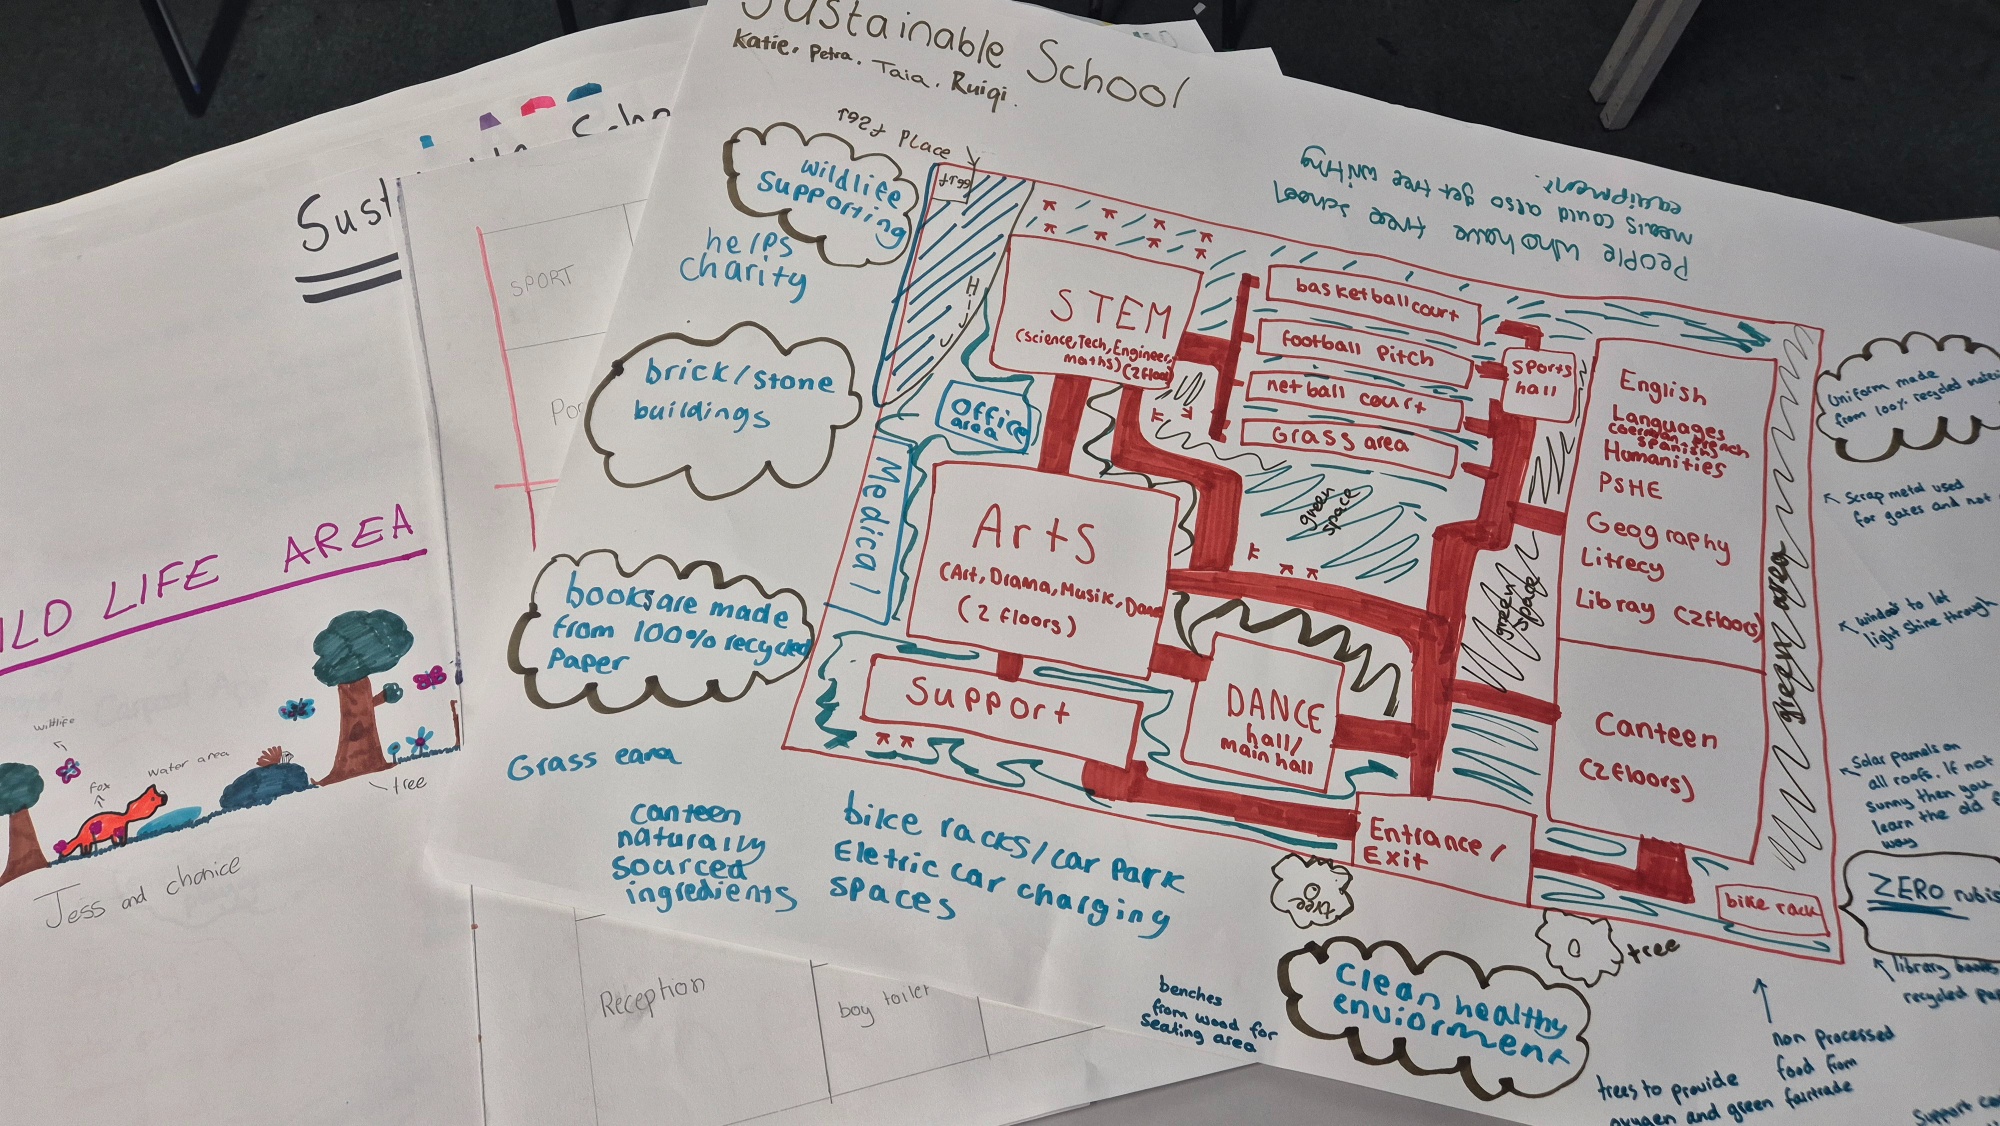 Sustainable School
Katie. Petra. Taia. Ruiqi.
Place
wildlife
supporting
helps
charity
brick/stone
buildings
books are made
from 100% recycled
paper
Grass eara
canteen
naturally
sourced
ingredients
bike racks/car park
Eletric car charging
spaces
benches
from wood for
seating area
Clean healthy
enviorment
tree
tree
trees to provide
oxygen and green
non processed
food from
fairtrade
People who have free school
meals could also get free writing
equipment.
Hill
STEM
(science, Tech, Engineer,
maths) (2 floor)
Office
area
Medical
Arts
(Art, Drama, Musik, Dance
(2 floors)
Support
DANCE
hall/
main hall
basketball court
football pitch
netball court
Grass area
sports
hall
green
space
green
space
English
Languages
German French
Spanish
Humanities
PSHE
Geography
Litrecy
Libray (2floors)
Canteen
(2floors)
green area
Entrance/
Exit
bike rack
Uniform made
from 100% recycled
scrap metal used
for gates and not
window to let
light shine through
Solar pannels on
all roofs. If not
sunny then you
learn the old
way
ZERO
library books
recycled
Support
Sust
SPORT
WILD LIFE AREA
wildlife
fox
water area
tree
Jess and chanice
Reception
boy toilet